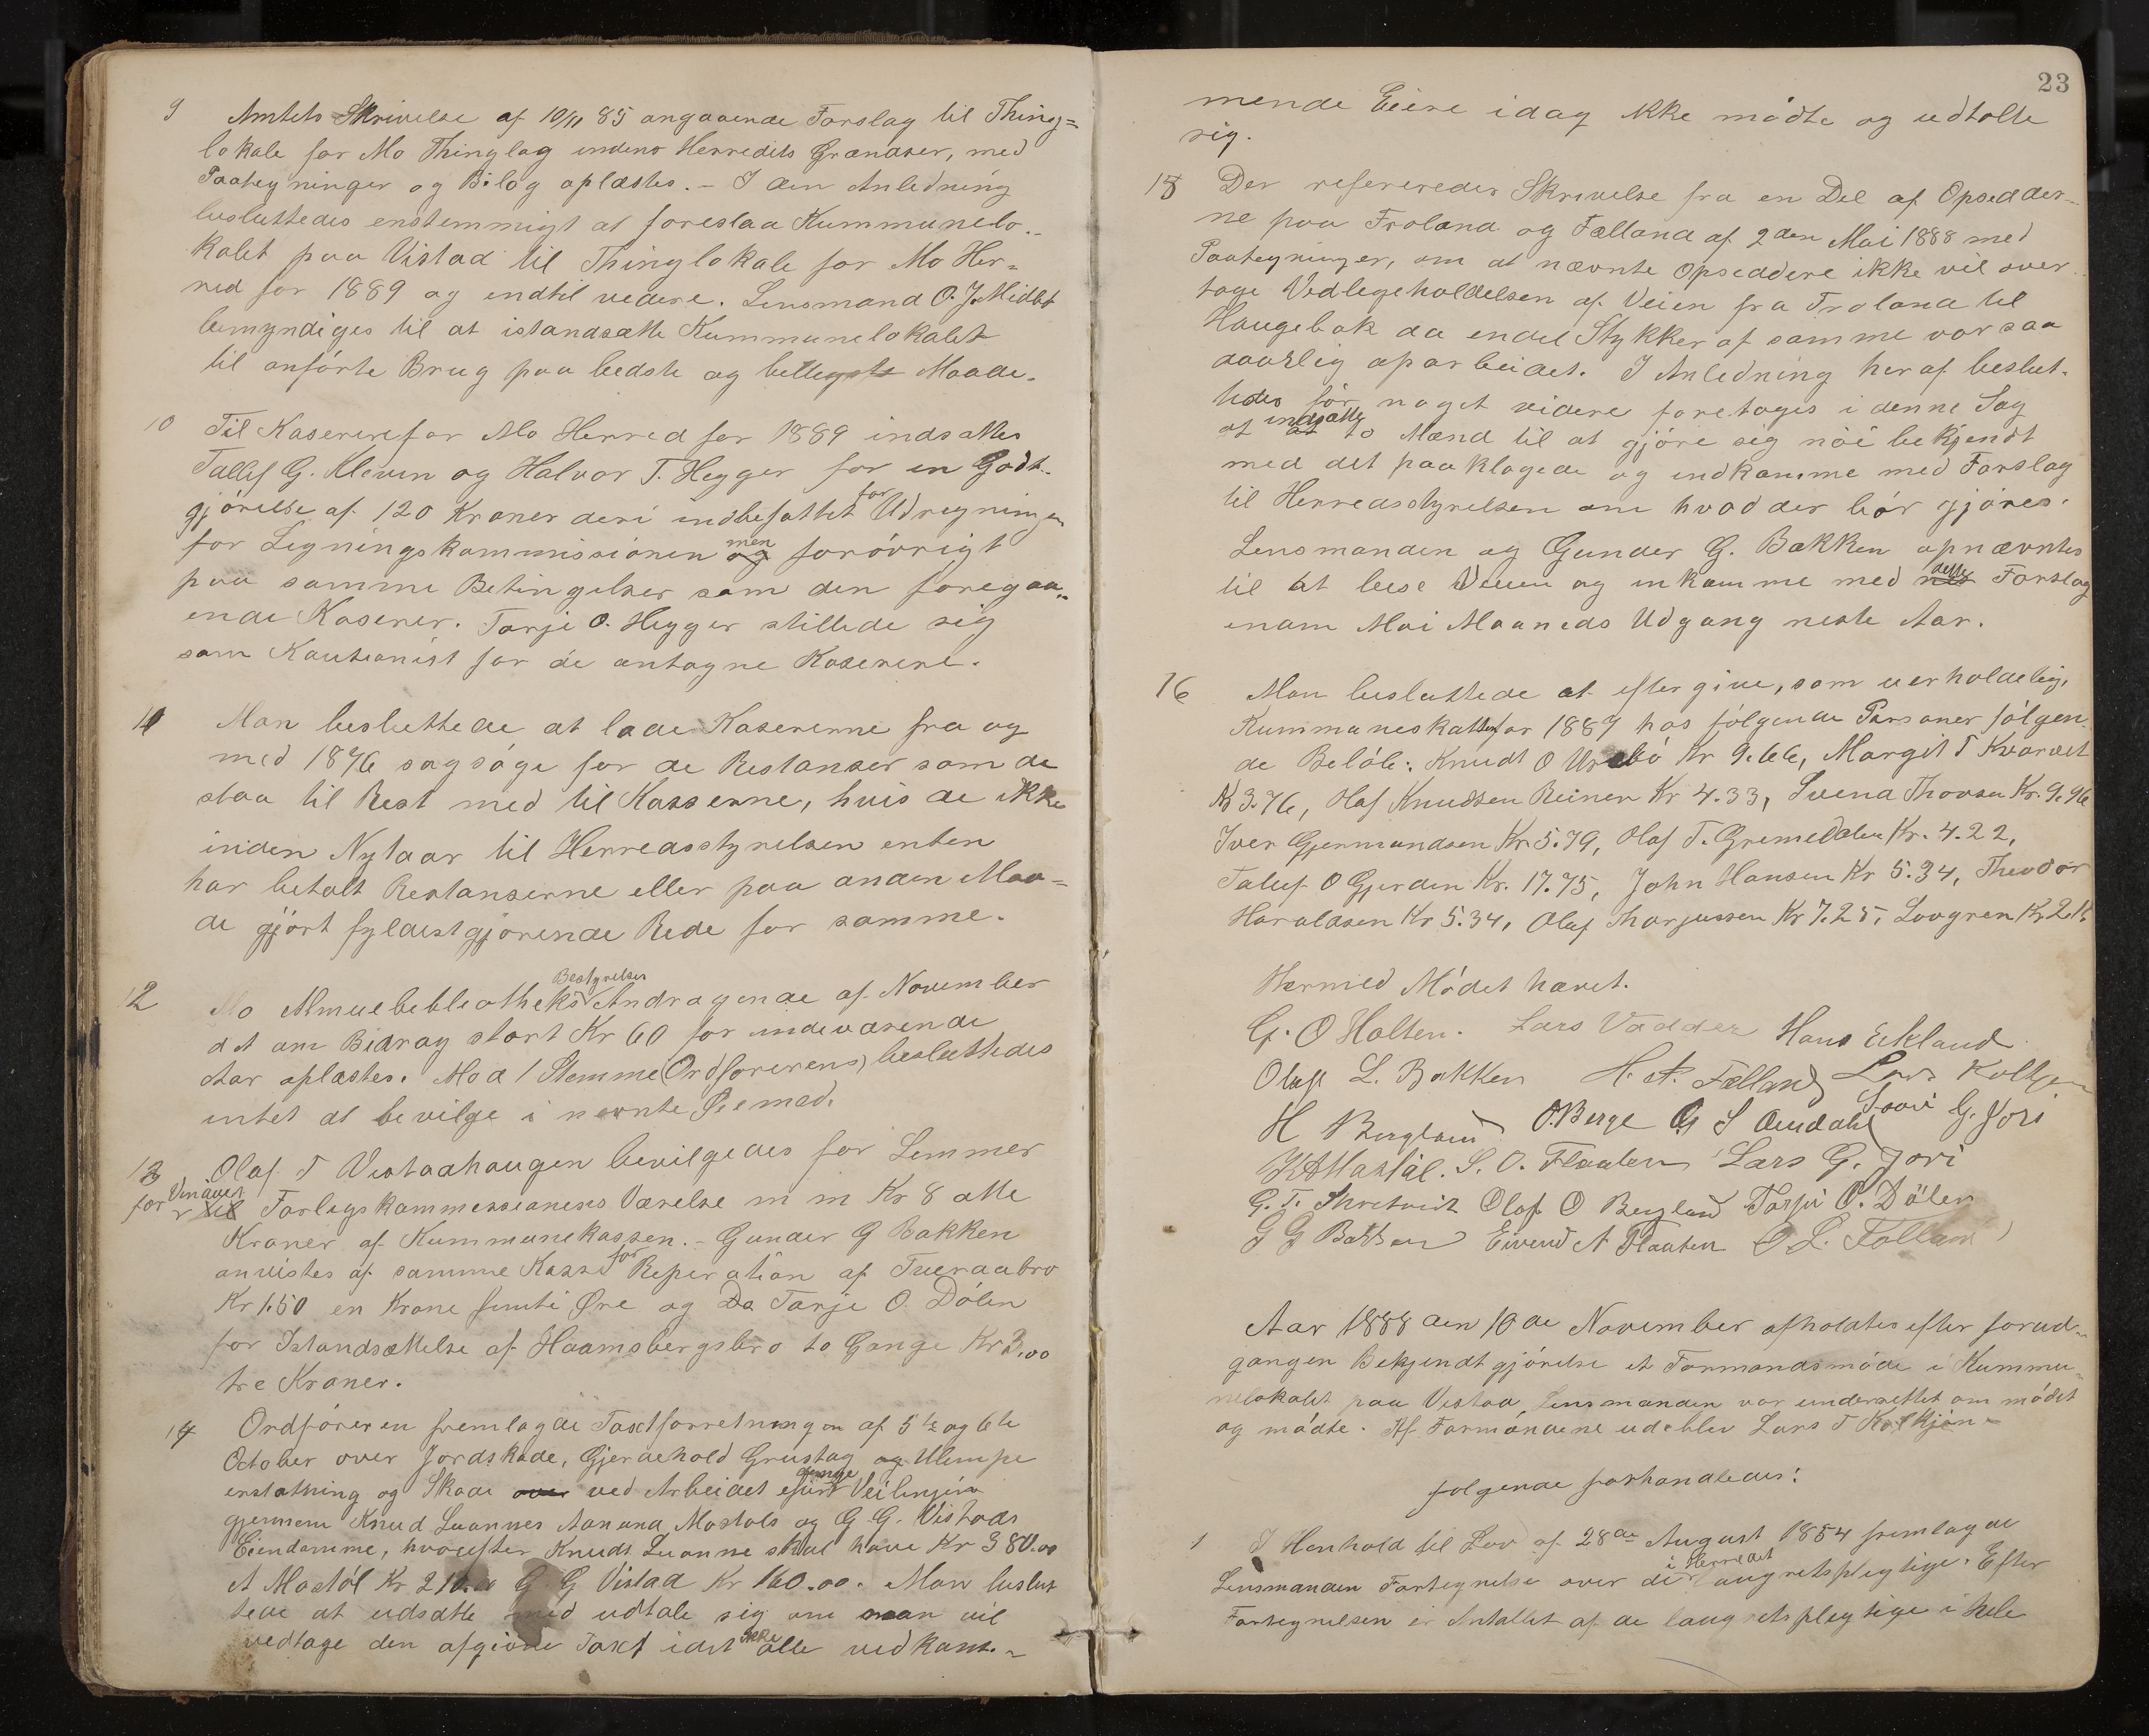 9 Amtets Skrivelse af 10/11 85 angaaende Forslag til Thing=
lokale for Mo Thinglag indens Herredets Grændser, med
Paategninger og Bilag oplæstes. – I den Anledning
besluttedes enstemmigt at foreslaa Kummunelo-
kalet paa Vistad til Thinglokale for Mo Her=
red for 1889 og indtil videre. Lensmand O. J. Midbø
bemyndiges til at istandsætte Kummunelokalet
til anförte Brug paa bedste og billigste Maade.
10 Til Kaserere for Mo Herred for 1889 indsattes
Tallef G. Kleven og Halvor T. Hegger for en Godt-
gjörelse af 120 Kroner deri indbefattet for Udregningen
for Ligningskommissionen og men forövrigt
paa samme Betingelser som den foregaa-
ende Kaserer. Tarje O. Hegger stillede sig
som Kautionist for de antagne Kaserere.
11 Man besluttede at lade Kasererne fra og
med 1876 sagsöge for de Restanser som de
staa til Rest med til Kasserne, hvis de ikke
inden Nytaar til Herredsstyrelsen enten
har betalt Restanserne eller paa anden Maa=
de gjört fyldestgjörende Rede for samme.
12 Mo Almuebibliotheks Bestyrelses Andragende af November
d A om Bidrag stort Kr 60 for indeværende
Aar oplæstes. Mod 1 Stemme (Ordförerens) besluttedes
intet at bevilge i nævnte Öiemed.
13 Olaf T Vistadhaugen bevilgedes for Lemmer
for Vinduer til Forligskommissionens Værelse m m Kr 8 otte
Kroner af Kummunekassen. – Gunder G Bakken
anvistes af samme Kasse for Reperation af Tveraabro
Kr 1.50 en Krone femti Øre og Do Tarje O. Dölen
for Istandsættelse af Haamsbergsbro to Gange Kr 3,00
tre Kroner.
14 Ordföreren fremlagde Taxtforretningen af 5te og 6te
October over Jordskade, Gjerdehold Grustag og Ulempe
erstatning og Skade over ved Arbeidet efter denne Veilinjen
gjennem Knud Luannes Aanund Mostøls og G. G. Vistads
Eiendomme, hvorefter Knudt Luanne skul have Kr 380.00
A Mostöl Kr 210.00 G G Vistad Kr 160.00. Man beslut
tede at udsætte med udtale sig om man vil
vedtage den afgivne Taxt idet ikke alle vedkom-
23
mende Eiere idag ikke mödte og udtalte
sig.
15 Der refereredes Skrivelse fra en Del af Opsidder-
ne paa Froland og Fælland af 2den Mai 1888 med
Paategninger, om at nævnte Opsiddere ikke vil over
tage Vedligeholdelsen af Veien fra Froland til
Haugebak da endel Stykker af samme var saa
daarlig oparbeidet. I Anledning heraf beslut-
tedes för noget videre foretages i denne Sag
at indsætte to Mænd til at gjöre sig nöi bekjendt
med det paaklagede og indkomme med Forslag
til Herredsstyrelsen om hvad der bör gjöres.
Lensmanden og Gunder G. Bakken opnævntes
til at bese Veien og inkomme med dette Forslag
inden Mai Maaneds Udgang neste Aar.
16 Man besluttede at eftergive, som uerholdelig,
Kummuneskatten for 1887 hos fölgende Personer fölgen
de Belöb: Knudt O Ursbö Kr 9.66, Margit T Kvarvet
Kr 3.76, Olaf Knudsen Reinen Kr 4.33, Svend Thorsen Kr. 9.96
Iver Gjermundsen Kr. 5.79, Olaf T. Gremedalen Kr. 4.22,
Taluf O Gjerden Kr. 17.75, John Hansen Kr 5.34, Theodor
Haraldsen Kr 5.34, Olaf Thorjussen Kr 7.25, Lovgren Kr 2.
Hermed Mödet hævet.
G. O Holten. Lars Vadder Hans Eekland
Oluf L. Bakken H. A. Fælland Lars Kolkjen
H Bergland O. Berge G S Omdahl G. Jori
K A Mostøl. S. O. Flaaten Lars G. Jori
G. T. Skretveit Olaf O Bergland Tarje O. Dölen
G G Bakken Eivend A Flaaten O L. Fælland
Aar 1888 den 10de November afholdtes efter forud-
gangen Bekjendtgjörelse et Formandsmöde i Kummu-
nelokalet paa Vistad, Lensmanden var underrettet om mödet
og mödte. Af Formændene udeblev Lars T Kolkjøn
fölgende forhandledes:
1 I Henhold til Lov af 28de August 1854 fremlagde
Lensmanden Fortegnelse over de i Herredet laugretspligtige. Efter
Fortegnelsen er Antallet af de laugretspligtige i hele